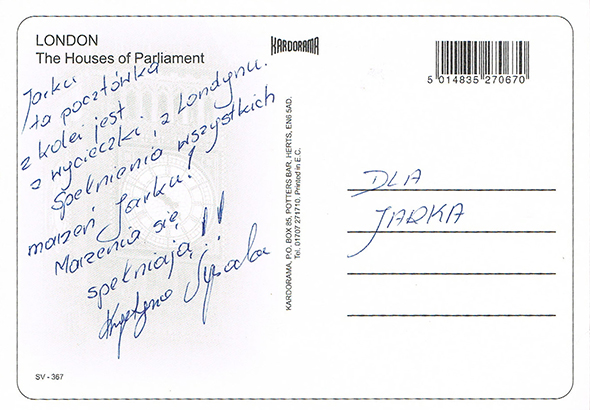 LONDON
The Houses of Parliament
KARDORAMA
5 014835 270670
Jarku
ta pocztówka
z kolei jest
z wycieczki z Londynu.
Spełnienia wszystkich
marzeń Jarku!
Marzenia się
spełniają!!
Krystyna
DLA
JARKA
KARDORAMA, P.O. BOX 85, POTTERS BAR, HERTS, EN6 5AD.
Tel. 01707 271710. Printed in E.C.
SV - 367